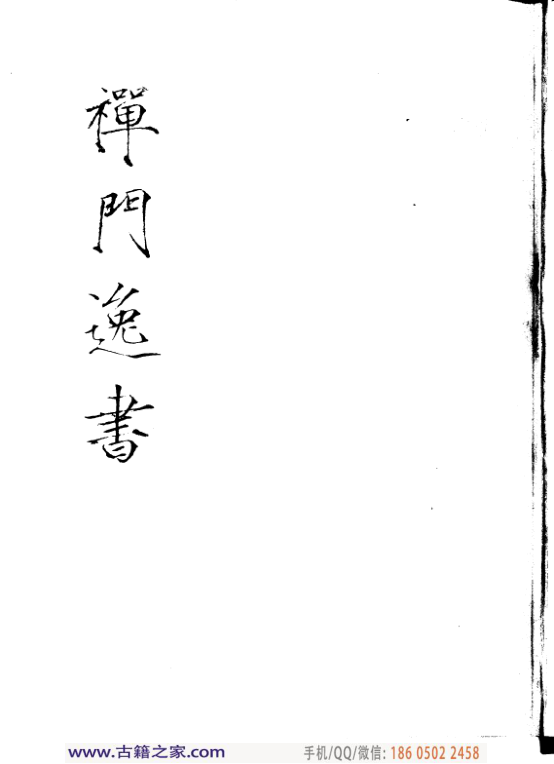 禪門逸書
www.古籍之家.com 手机/QQ/微信: 186 0502 2458